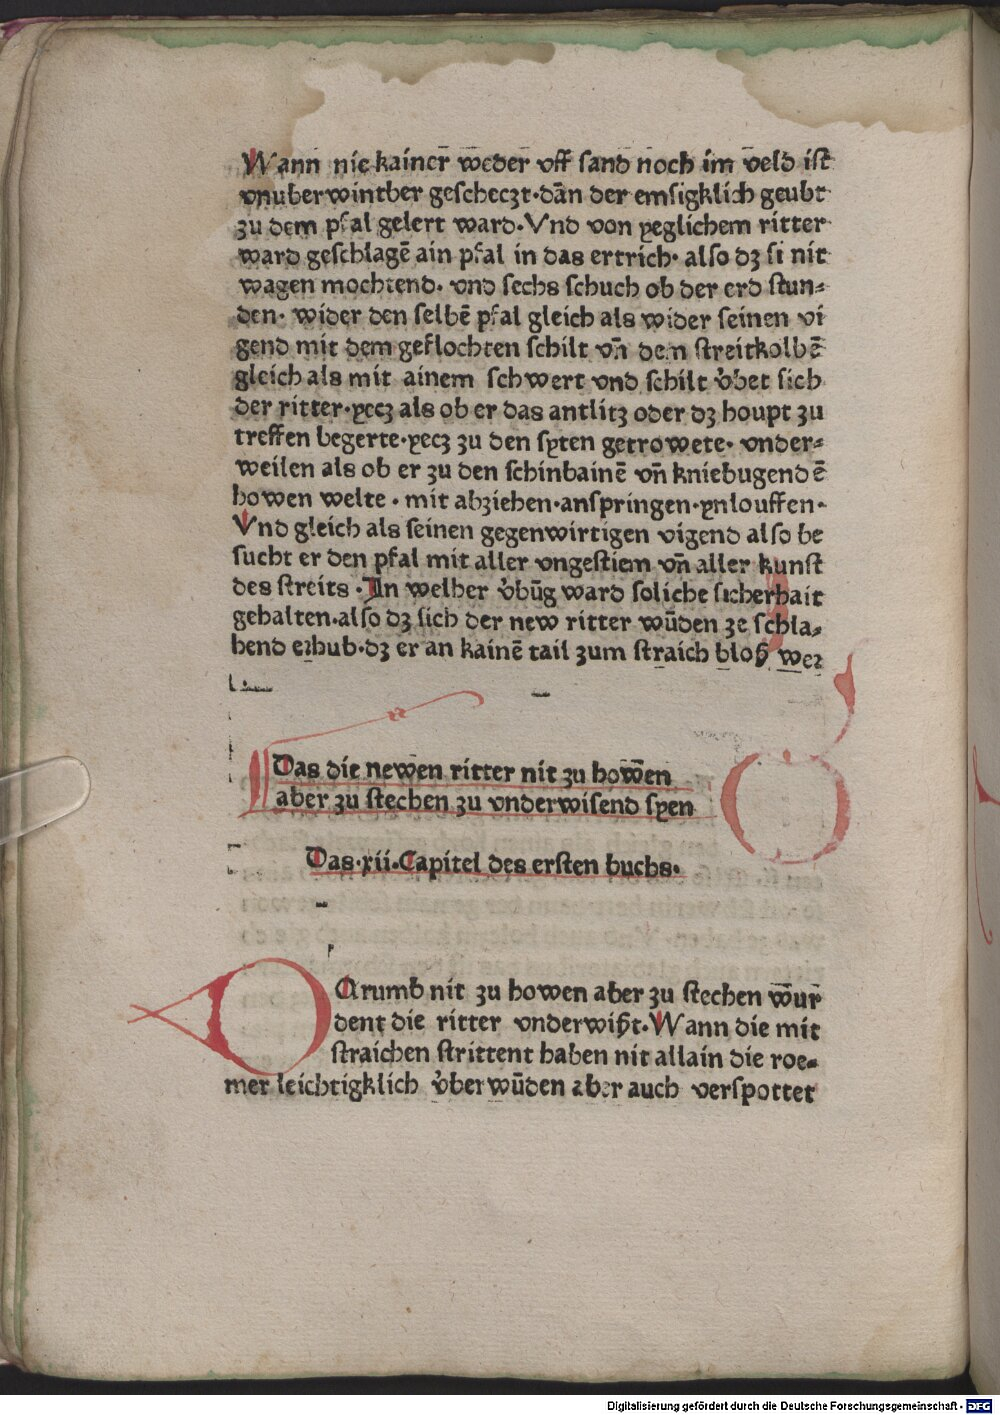 Wann nie kainer weder vff sand noch im veld ist
vnuberwintber gescheczt·dān der emsigklich geubt
zu dem pfal gelert ward·Vnd von yeglichem ritter
ward geschlagē ain pfal in das ertrich· also dz si nit
wagen mochtend· vnd sechs schuch ob der erd stun⸗
den· wider den selbē pfal gleich als wider seinen vi
gend mit dem geflochten schilt vn̄ dem streitkolbē
gleich als mit ainem schwert vnd schilt v̊bet sich
der ritter·yecz als ob er das antlitz oder dz houpt zu
treffen begerte·yecz zu den syten getrowete· vnder⸗
weilen als ob er zu den schinbainē vn̄ kniebugendē
howen welte· mit abziehen·anspringen·ynlouffen·
Vnd gleich als seinen gegenwirtigen vigend also be
sucht er den pfal mit aller vngestiem vn̄ aller kunst
des streits·In welher v̊būg ward soliche sicherhait
gehalten·also dz sich der new ritter wūden ze schla⸗
hend erhub·dz er an kainē tail zum straich bloß wer
Das die newen ritter nit zu howen
aber zu stechen zu vnderwisend syen
Das·xii·Capitel des ersten buchs·
DArumb nit zu howen aber zu stechen wur
dent die ritter vnderwißt·Wann die mit
straichen strittent haben nit allain die roe⸗
mer leichtigklich v̊berwūden aber auch verspottet
Digitalisierung gefördert durch die Deutsche Forschungsgemeinschaft - DFG